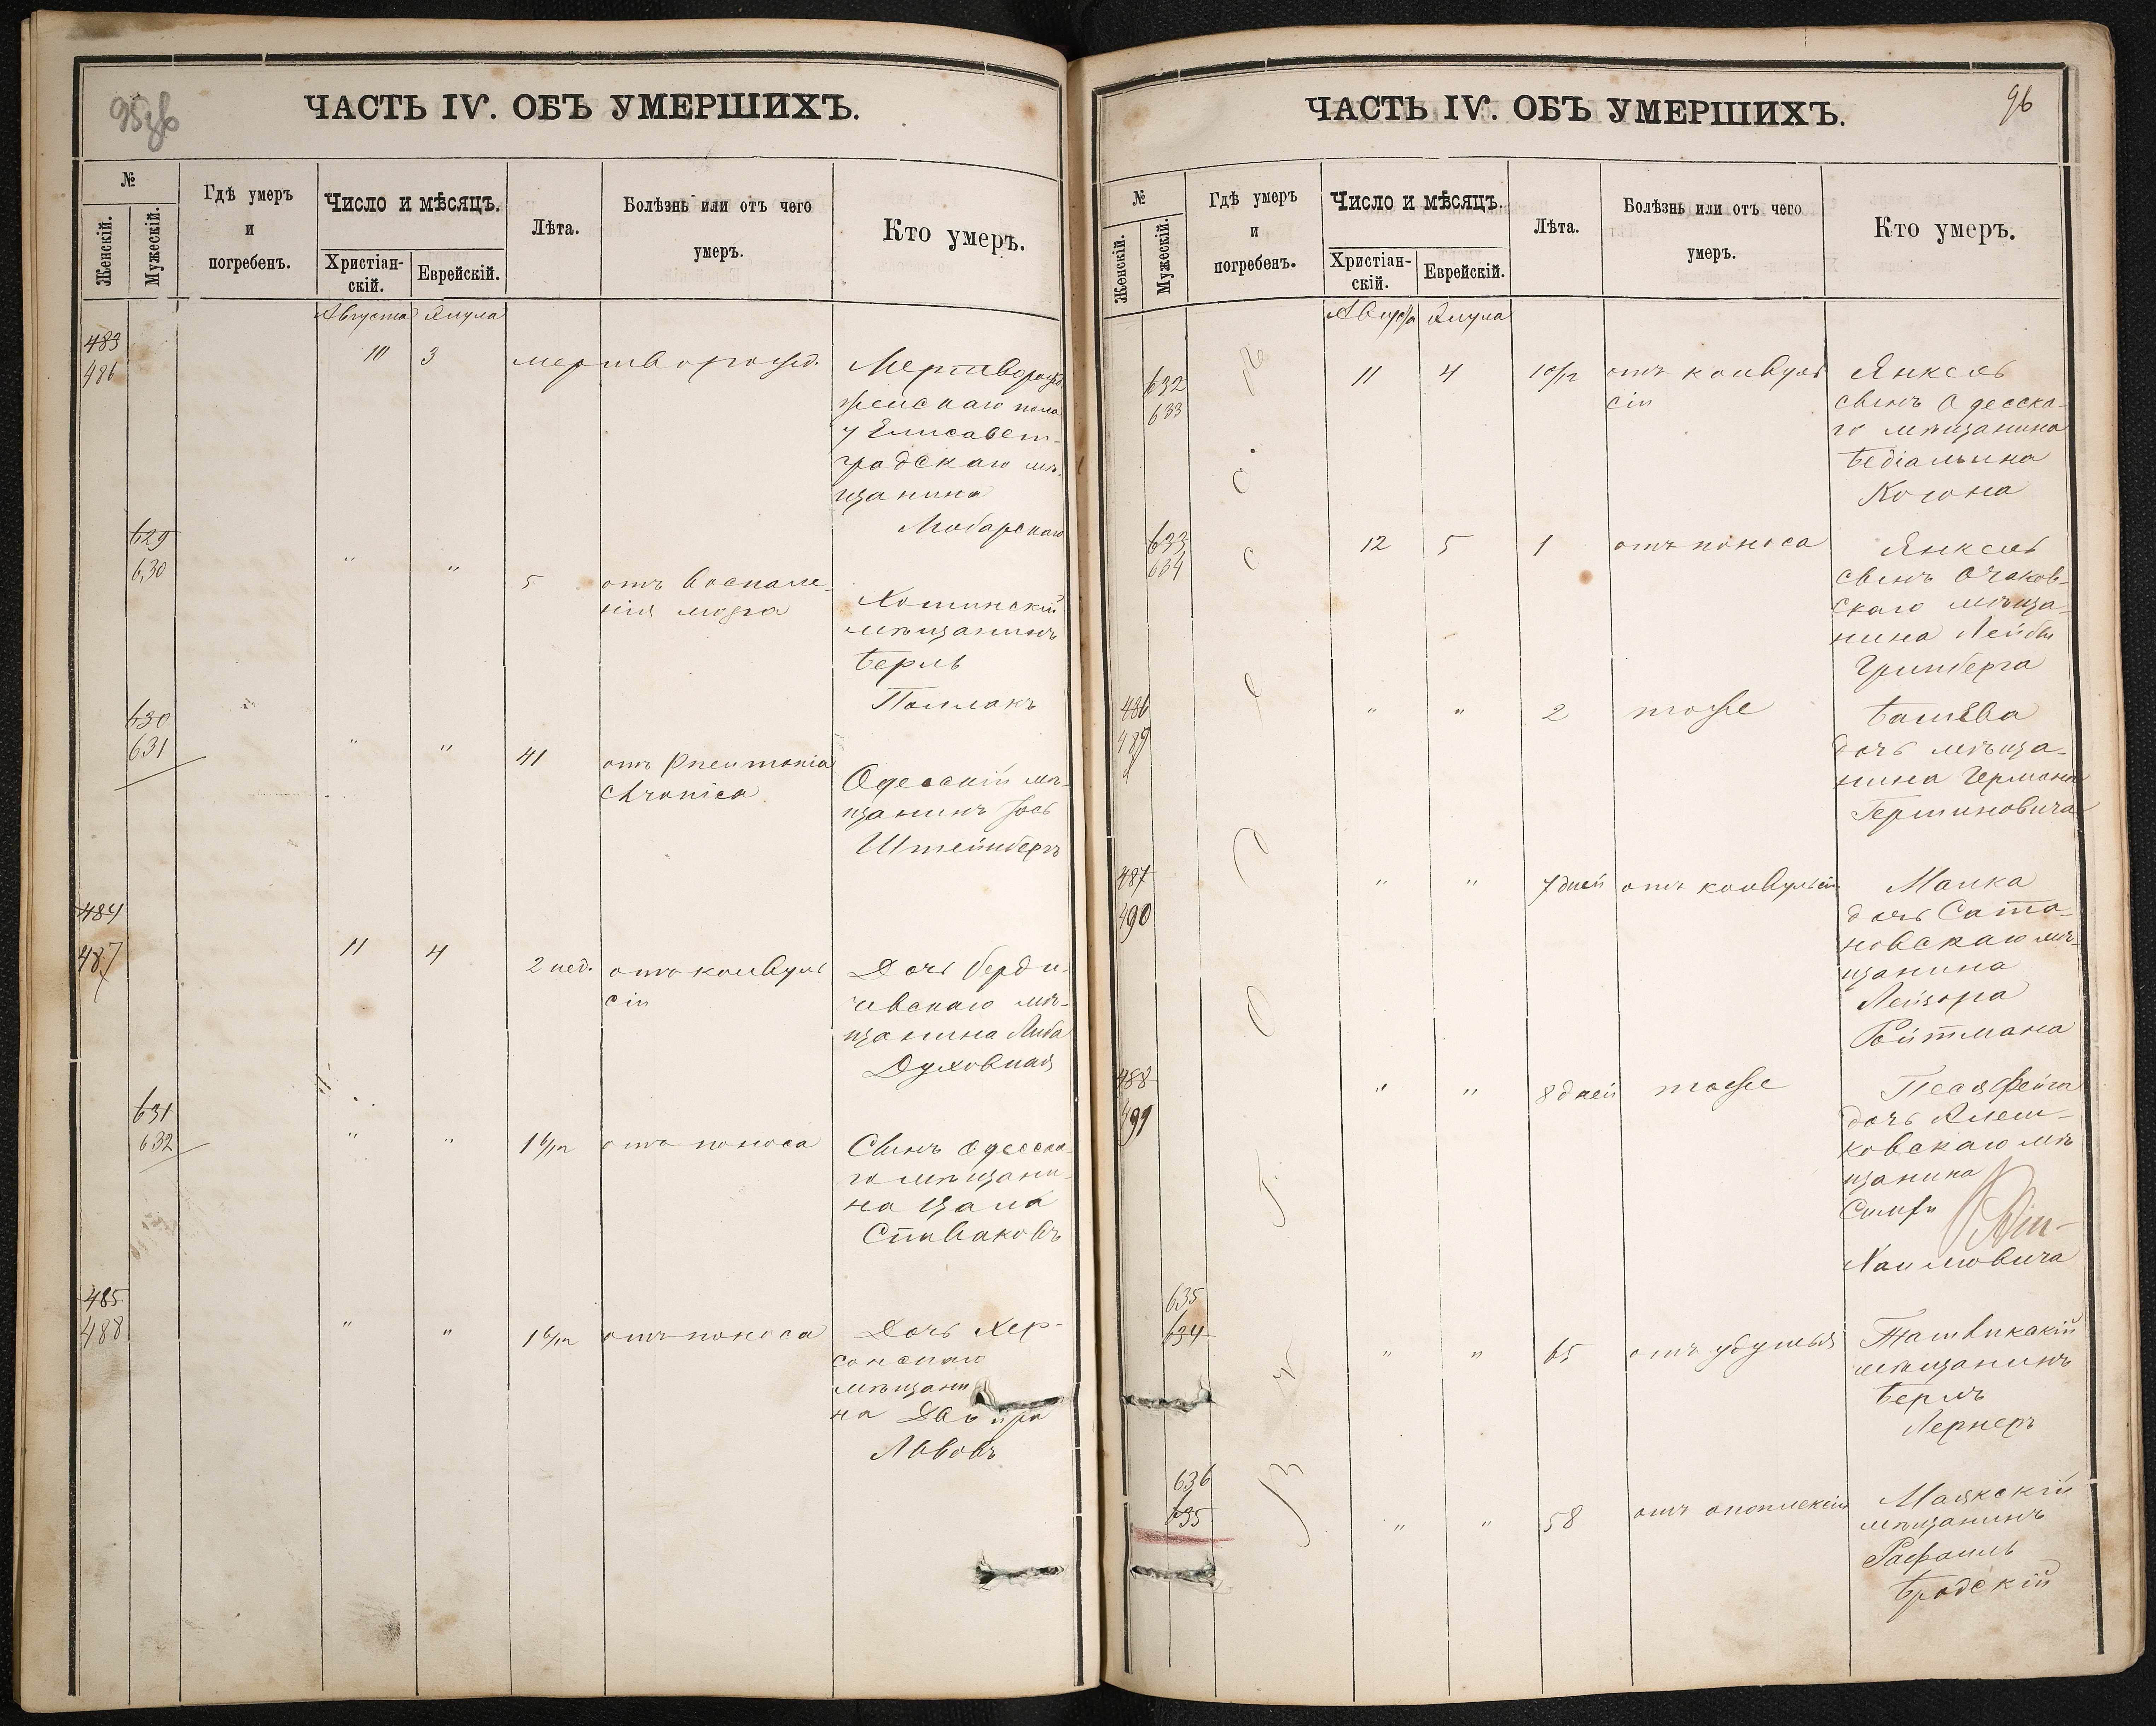 ЧАСТЬ IV. ОБЪ УМЕРШИХЪ.
№
Женскій.
Мужескій.
Гдѣ умеръ
и
погребенъ.
Число и мѣсяцъ.
Христіан-
скій.
Еврейскій.
Лѣта.
Болѣзнь или отъ чего
умеръ.
Кто умеръ.
Августа Элула
483
486
10 3 мертворожд. Мертворожд.
женскаго пола
у Елисавет-
градскаго мѣ-
щанина
629
630
" " 5 отъ воспале-
нія мозга
Хотинскій
мѣщанинъ
Берль
Поллакъ
630
631
" " 41 отъ Pneumonia
Chronica
Одесскій мѣ-
щанинъ Іось
Штейнбергъ
484
487
11 4 2 нед. отъ конвуль
сіи
Дочь Берди-
чевскаго мѣ-
щанина Либа
Духовная
631
632
" " 1 6/12 отъ поноса Сынъ Одесска-
го мѣщани-
на
Спиваковъ
485
488
" " 1 6/12 отъ поноса Дочь Хер-
сонскаго
мѣщани
на Двойра
Львовъ
ЧАСТЬ IV. ОБЪ УМЕРШИХЪ.
96
№
Женскій.
Мужескій.
Гдѣ умеръ
и
погребенъ.
Число и мѣсяцъ.
Христіан-
скій.
Еврейскій.
Лѣта.
Болѣзнь или отъ чего
умеръ.
Кто умеръ.
Августа Элула
632
633
11 4 10/12 отъ конвуль
сіи
Янкель
сынъ Одесска-
го мѣщанина
Когона
633
634
12 5 1 отъ поноса Янкель
сынъ Очаков-
скаго мѣща-
нина Лейбы
Гринберга
486
489
" " 2 тоже Батшева
дочь мѣща-
нина Германа
Гершиновича
487
490
" " 7 дней отъ конвульсіи Малка
дочь Сата-
новскаго мѣ-
щанина
Лейзора
Ройтмана
488
491
" " 8 дней тоже Песя Фейга
дочь Алеш-
ковскаго мѣ
щанина
Хаимовича
635
634
" " 65 отъ удушья
мѣщанинъ
Берль
Лернеръ
636
635
" " 58 отъ апоплексіи Маякскій
мѣщанинъ
Рафаилъ
Бродскій